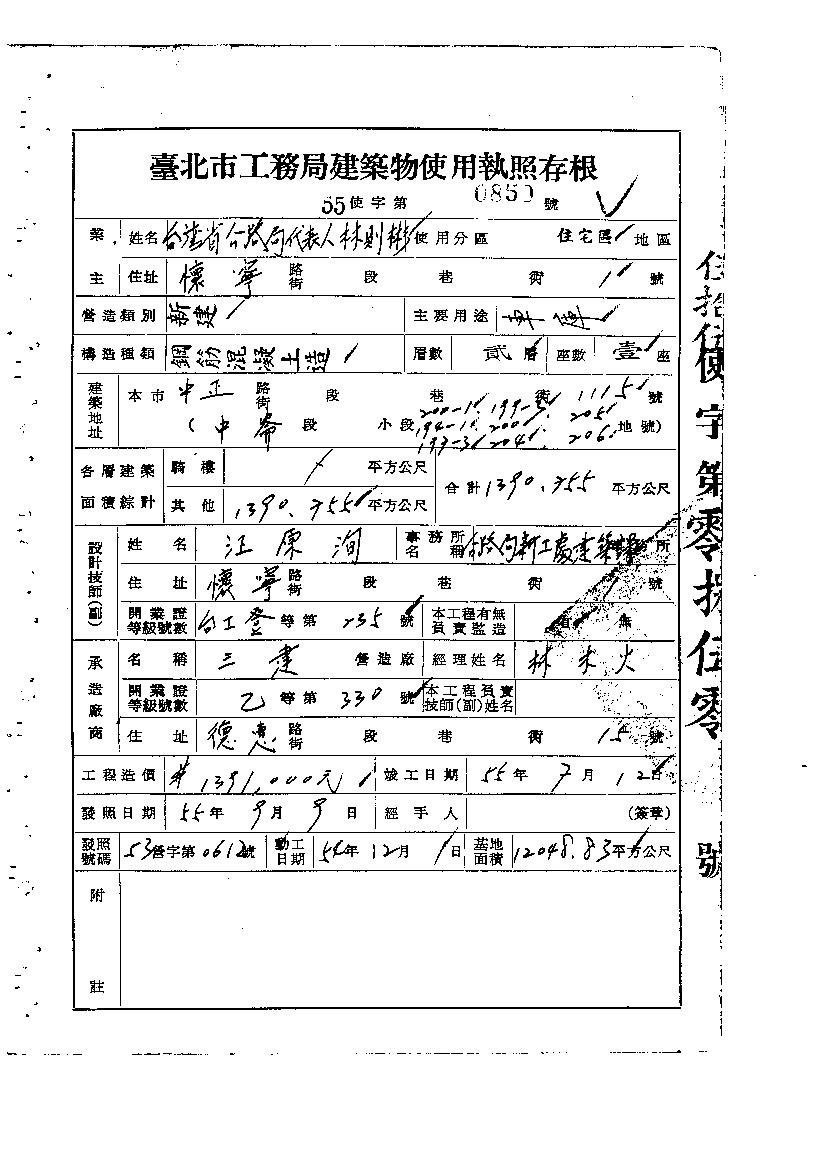 臺北市工務局建築物使用執照存根
55使字第 0850 號
業主 姓名 台灣省公路局代表人林則彬 使用分區 住宅區 地區
住址 懷寧 路街 段 巷 衖 1 號
營造類別 新建 主要用途 車庫
構造種類 鋼筋混凝土造 層數 貳層 座數 壹座
建築地址 本市 中正 路街 段 巷 衖 1115 號
(中崙段 小段 200-1 199-5 205 194-10 200 205 199-3 204 206 地號)
各層建築面積綜計 騎樓 / 平方公尺 合計 1390.755 平方公尺
其他 1390.755 平方公尺
設計技師(副) 姓名 汪原洵 事務所名稱 公路局新工處建築課 所
住址 懷寧 路街 段 巷 衖 1 號
開業證等級號數 台工登 等第 235 號 本工程有無負責監造 有 無
承造廠商 名稱 三建 營造廠 經理姓名 林木火
開業證等級號數 乙 等第 330 號 本工程負責技師(副)姓名
住址 德惠 路街 段 巷 衖 15 號
工程造價 1391,000元 竣工日期 55年 9月 12日
發照日期 55年 9月 9日 經手人 (簽章)
發照號碼 53營字第0612號 動工日期 54年 12月 1日 基地面積 12048.83平方公尺
附註
伍拾伍使字第零捌伍零號